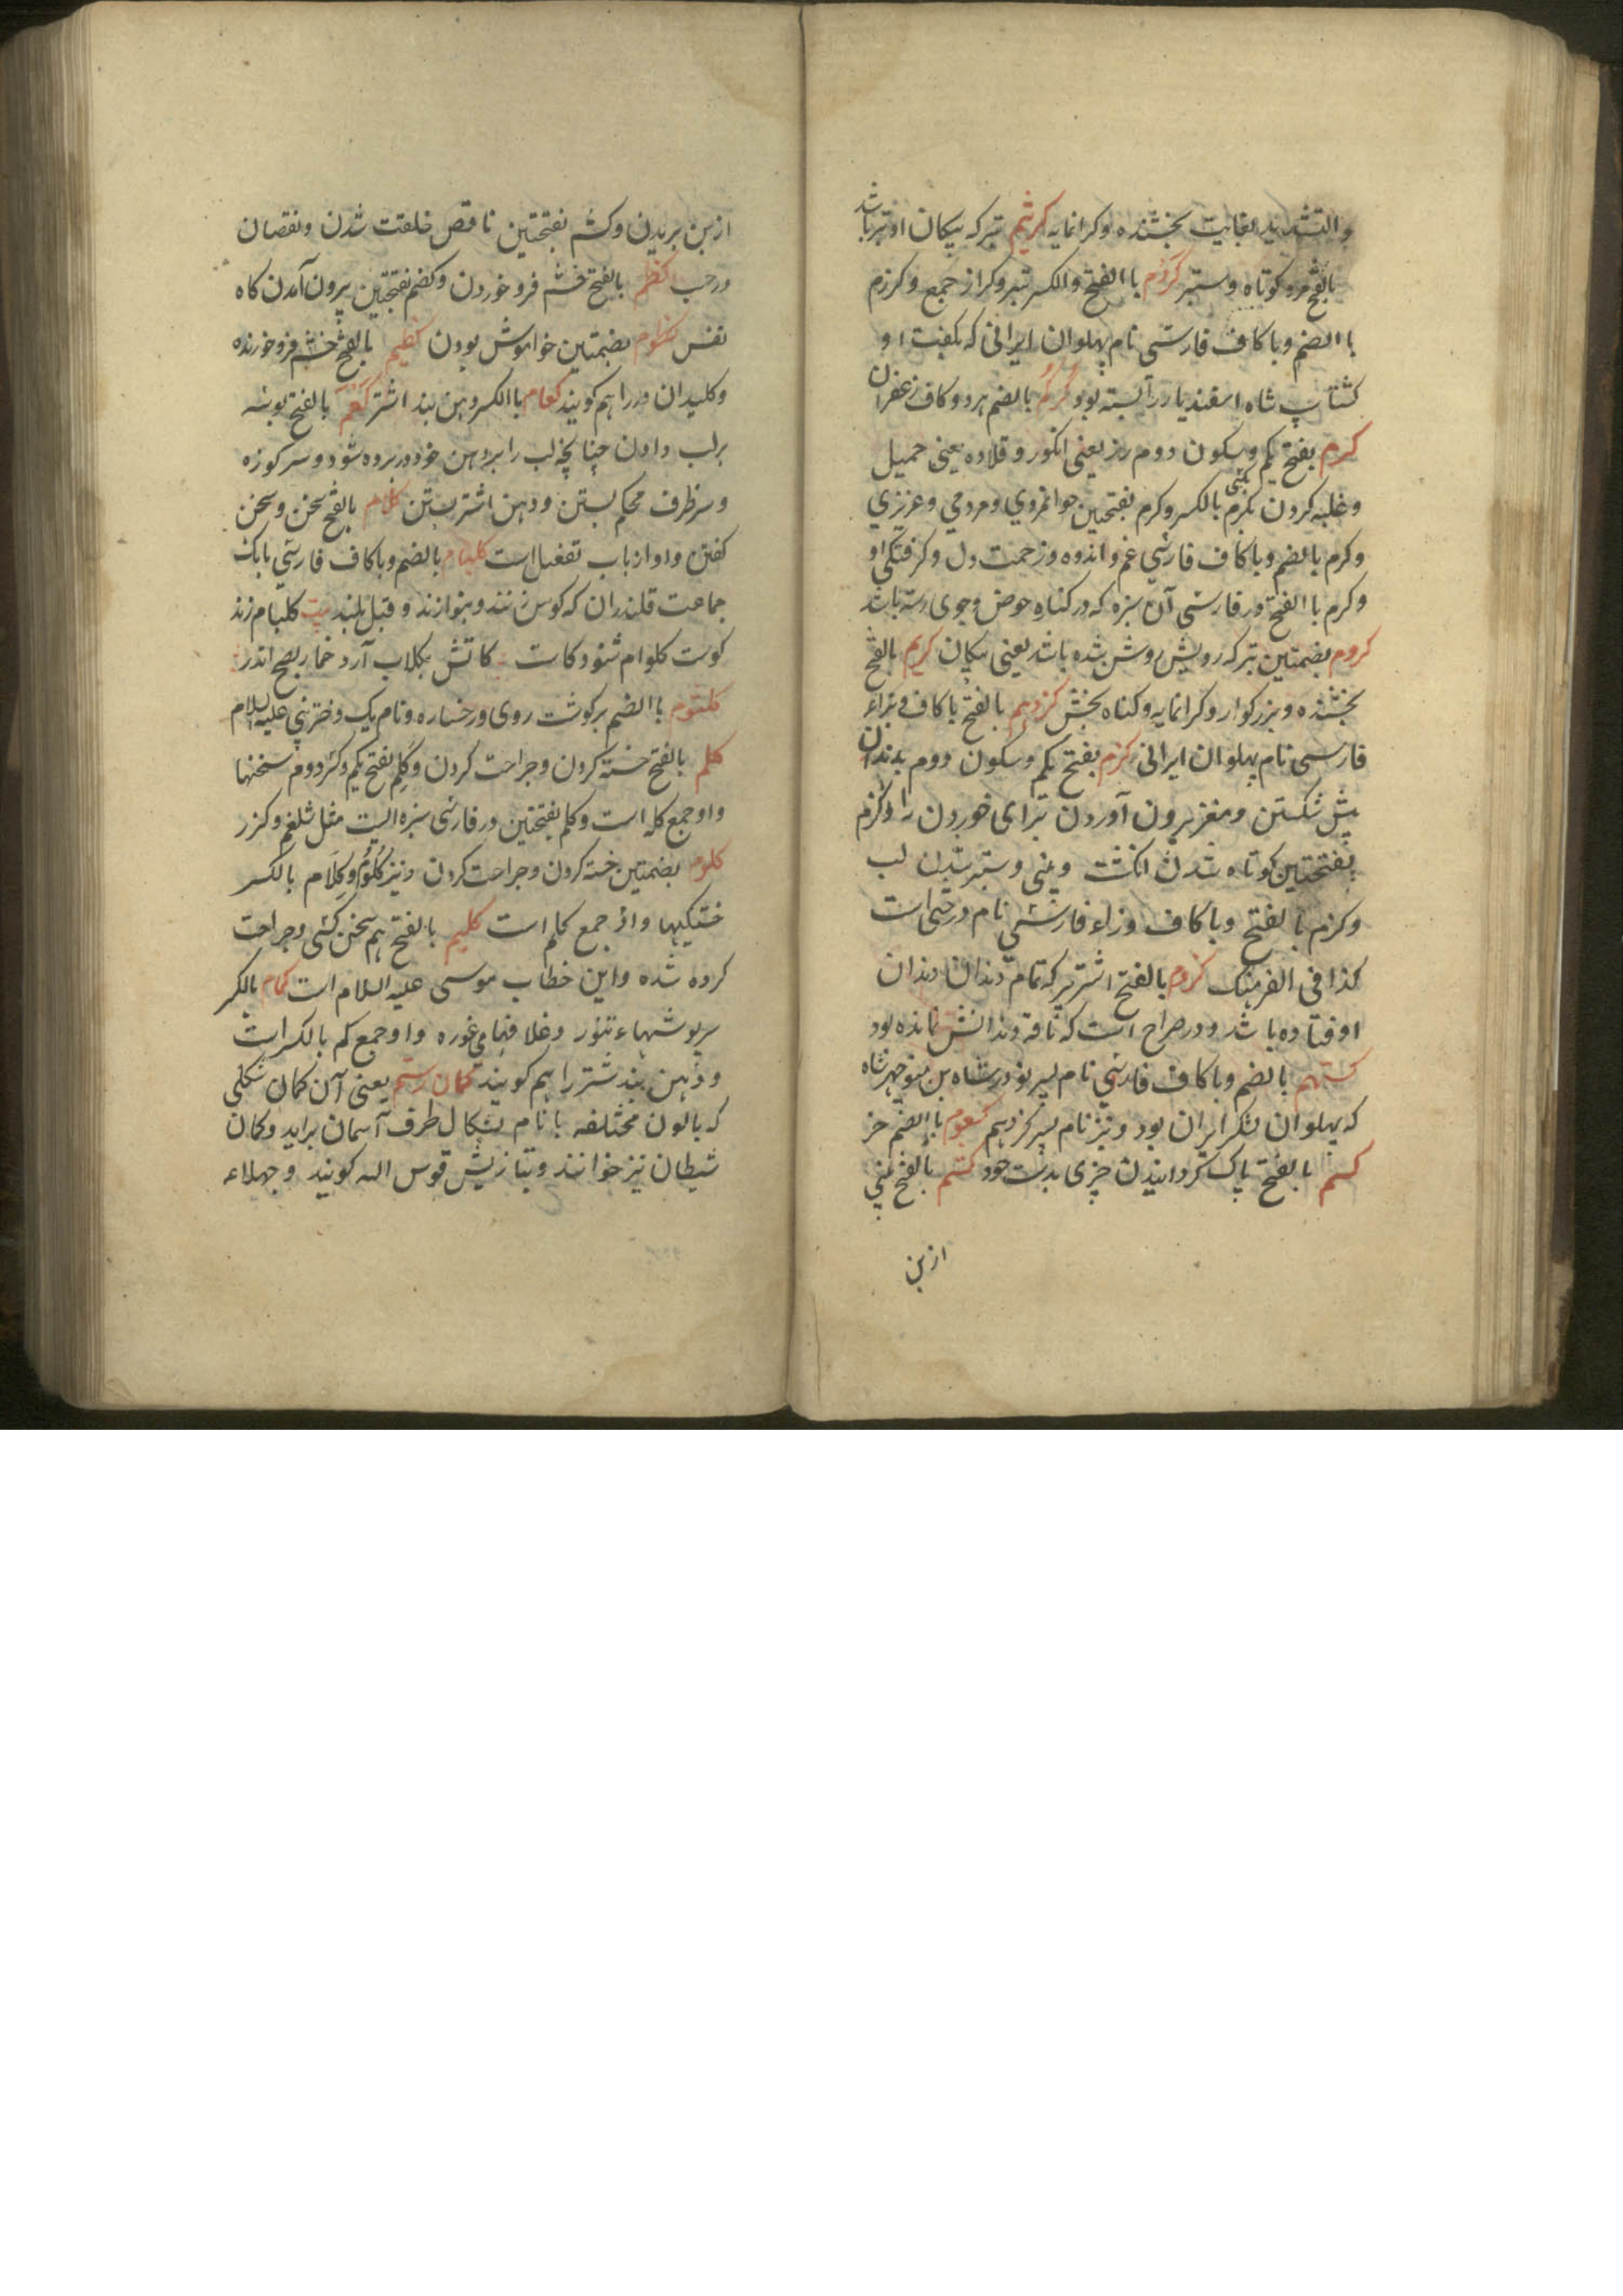 والتشدید بغایت بخشنده وکرانمایه کرثیم تبرکه پیکان او تیز باشد
بالفتح مرد کوتاه وستبر کرزم با الفتح والکسر تبر وکرازم جمع وکرزم
با الضم وباکاف فارسی نام پهلوان ایرانی که بکفت او
کشتاسپ شاه اسفندیار را بسته بود کرکم بالضم هر دو کاف زعفران
کرم بفتح یکم وسکون دوم رز یعنی انکور وقلاده یعنی حمیل
وغلبه کردن بکرم بالکسر وکرم بفتحتین جوانمردی ومردمی وعزیزی
وکرم بالضم وباکاف فارسی غم واندوه وزحمت دل وکرفتکی او
وکرم با الفتح در فارسی آن سبزه که در کناره حوض وجوی رسته باشد
کروم بضمتین تیرکه رویش روشن شده باشد یعنی پیکان کریم بالفتح
بخشنده وبزرکوار وکرانمایه وکناه بخش کژدهم بالفتح باکاف وبزاء
فارسی نام پهلوان ایرانی کزم بفتح یکم وسکون دوم بدندان
پیش شکستن ومغز بیرون آوردن برای خوردن را وکزم
بفتحتین کوتاه شدن انکشت وبینی وستبر شدن لب
وکزم بالفتح وباکاف وزاء فارسی نام درختی است
کذا فی الفرهنک کزوم بالفتح اشتر پیر که تمام دندان دندان
اوفتاده باشد ودر صراح است که ناقه دندانش نمانده بود
کستهم بالضم وباکاف فارسی نام پسر نوذر شاه بن منوچهر شاه
که پهلوان لشکر ایران بود ونیز نام پسر کژدهم کسعوم با الضم خر
کسم بالفتح پاک کردانیدن چیزی بدست خود کشم بالفتح بینی
ازبن
ازبن بریدن وکشم بفتحتین ناقص خلقت شدن ونقصان
در حسب کظم بالفتح خشم فرو خوردن وکضم بفتحتین بیرون آمدن کاه
نفس کظوم بضمتین خواموش بودن کظیم بالفتح خشم فرو خورنده
وکلیدان در را هم کویند کعام با الکسر دهن بند اشتر کعم بالفتح بوسه
برلب دادن چنانچه لب را بردهن خود در برده شود وسر کوزه
وسر ظرف محکم بستن ودهن اشتر بستن کلام بالفتح سخن وسخن
کفتن واو از باب تفعیل است کلبام بالضم وباکاف فارسی بابک
جماعت قلندران که کوس زنند وبنوازند وقبل بلند بیت کلبام زند
کوست کلوام شنود کاست کاتش بکلاب آرد خمار بصبح اندر
کلثوم با الضم برکوشت روی ورخساره ونام یک دختر نبی علیه السلام
کلم بالفتح خسته کردن وجراحت کردن وکلم بفتح یکم وکسر دوم سخنها
واو جمع کلمه است وکلم بفتحتین در فارسی سبزه الیست مثل شلغم وکزر
کلوم بضمتین خسته کردن وجراحت کردن ونیز کلوم وکلام بالکسر
خستکیها واو جمع کلم است کلیم بالفتح هم سخن کسی وجراحت
کرده شده واین خطاب موسی علیه السلام است کمام بالکسر
سرپوشهاء تنور وغلافهای غوره واو جمع کم بالکسر است
ودهن بند شتر را هم کویند کمان رستم یعنی آن کمان شکلی
که بالون مختلفه بانام بشکال طرف آسمان براید وکمان
شیطان نیز خوانند وبتازیش قوس الله کویند وجهلاء